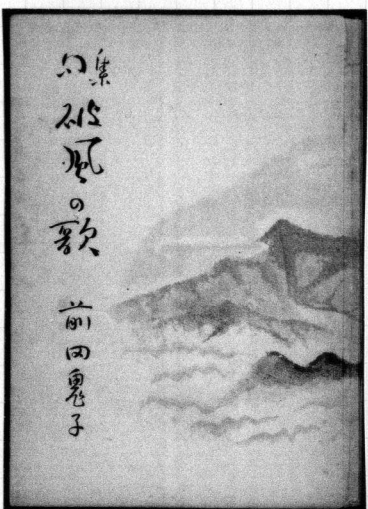 句集
破風の歌
前田鬼子